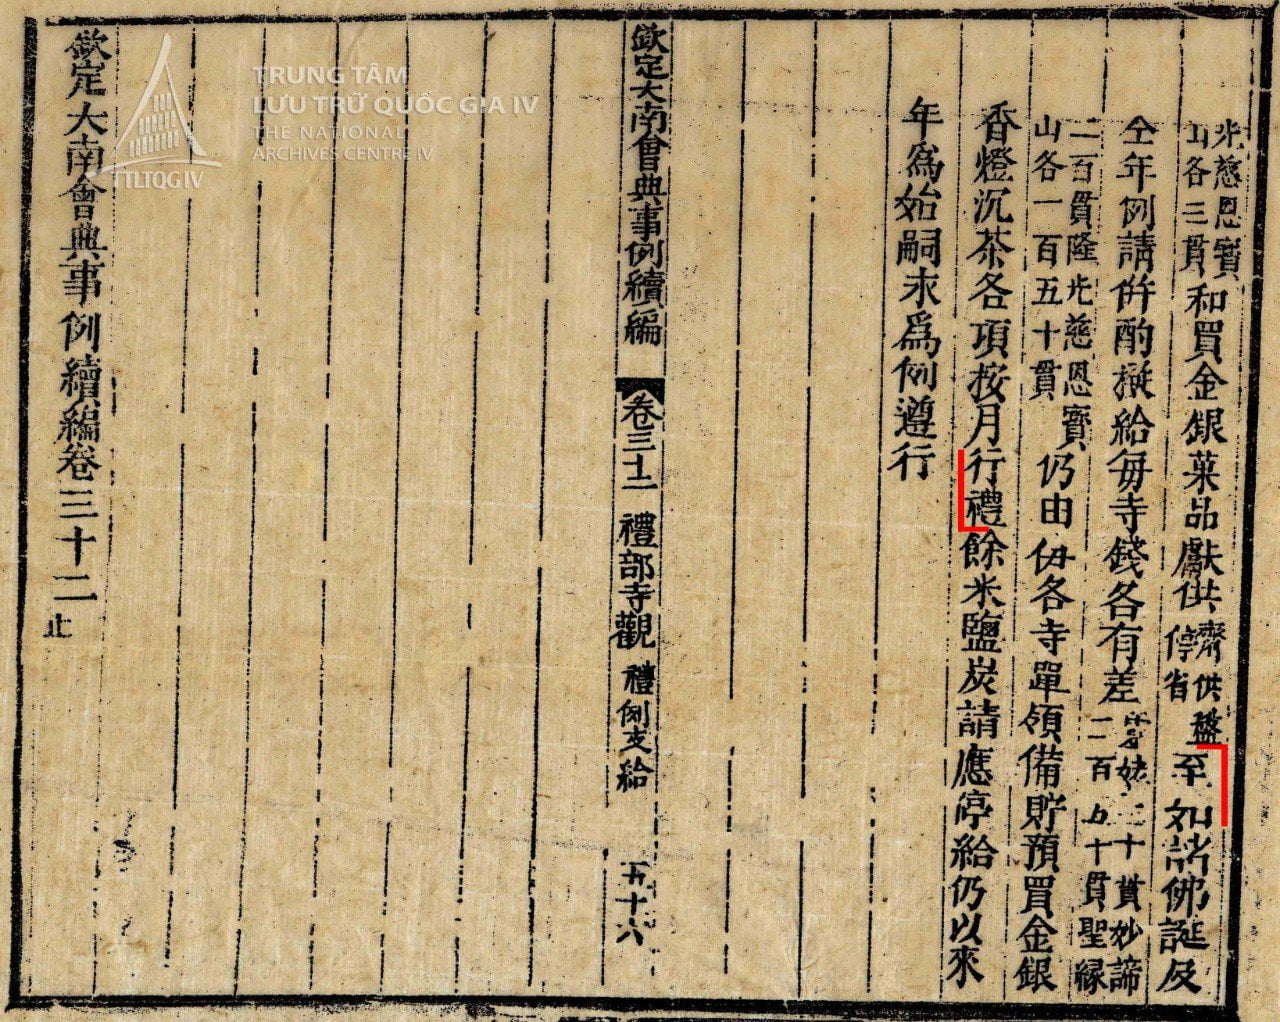 光慈恩寳
山各三貫
和買金銀菓品獻供
齊供盤
停省
至如諸佛誕及
仝年例請併酌擬給每寺錢各有差
姥 十貫妙諦
二百五十貫聖縁
二百貫隆光慈恩寳
山各一百五十貫
仍由伊各寺單領備貯預買金銀
香燈沉茶各項按月行禮餘米鹽炭請應停給仍以來
年爲始嗣永爲例遵行
欽定大南會典事例續編 卷三十二 禮部寺觀 禮例支給 五十六
欽定大南會典事例續編卷三十二 止
TRUNG TÂM
LƯU TRỮ QUỐC GIA IV
THE NATIONAL
ARCHIVES CENTRE IV
TTLTQG IV